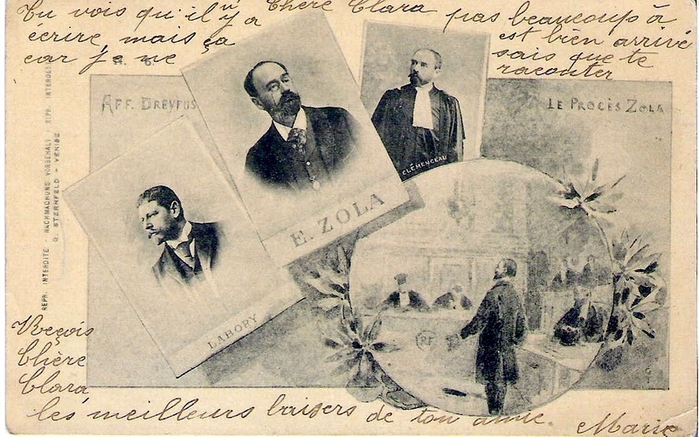 Chère Clara
Tu vois qu'il n'y a pas beaucoup à
écrire mais ça est bien arrivé
car je ne sais que te
raconter
AFF. DREYFUS
LE PROCÈS ZOLA
CLÉMENCEAU
E. ZOLA
LABORY
REPR. INTERDITE - NACHMACHUNG VORBEHALT. REPR. INTERDET
G. STERNFELD - VENISE
RF
Reçois
Chère
Clara
les meilleurs baisers de ton amie.
Marie